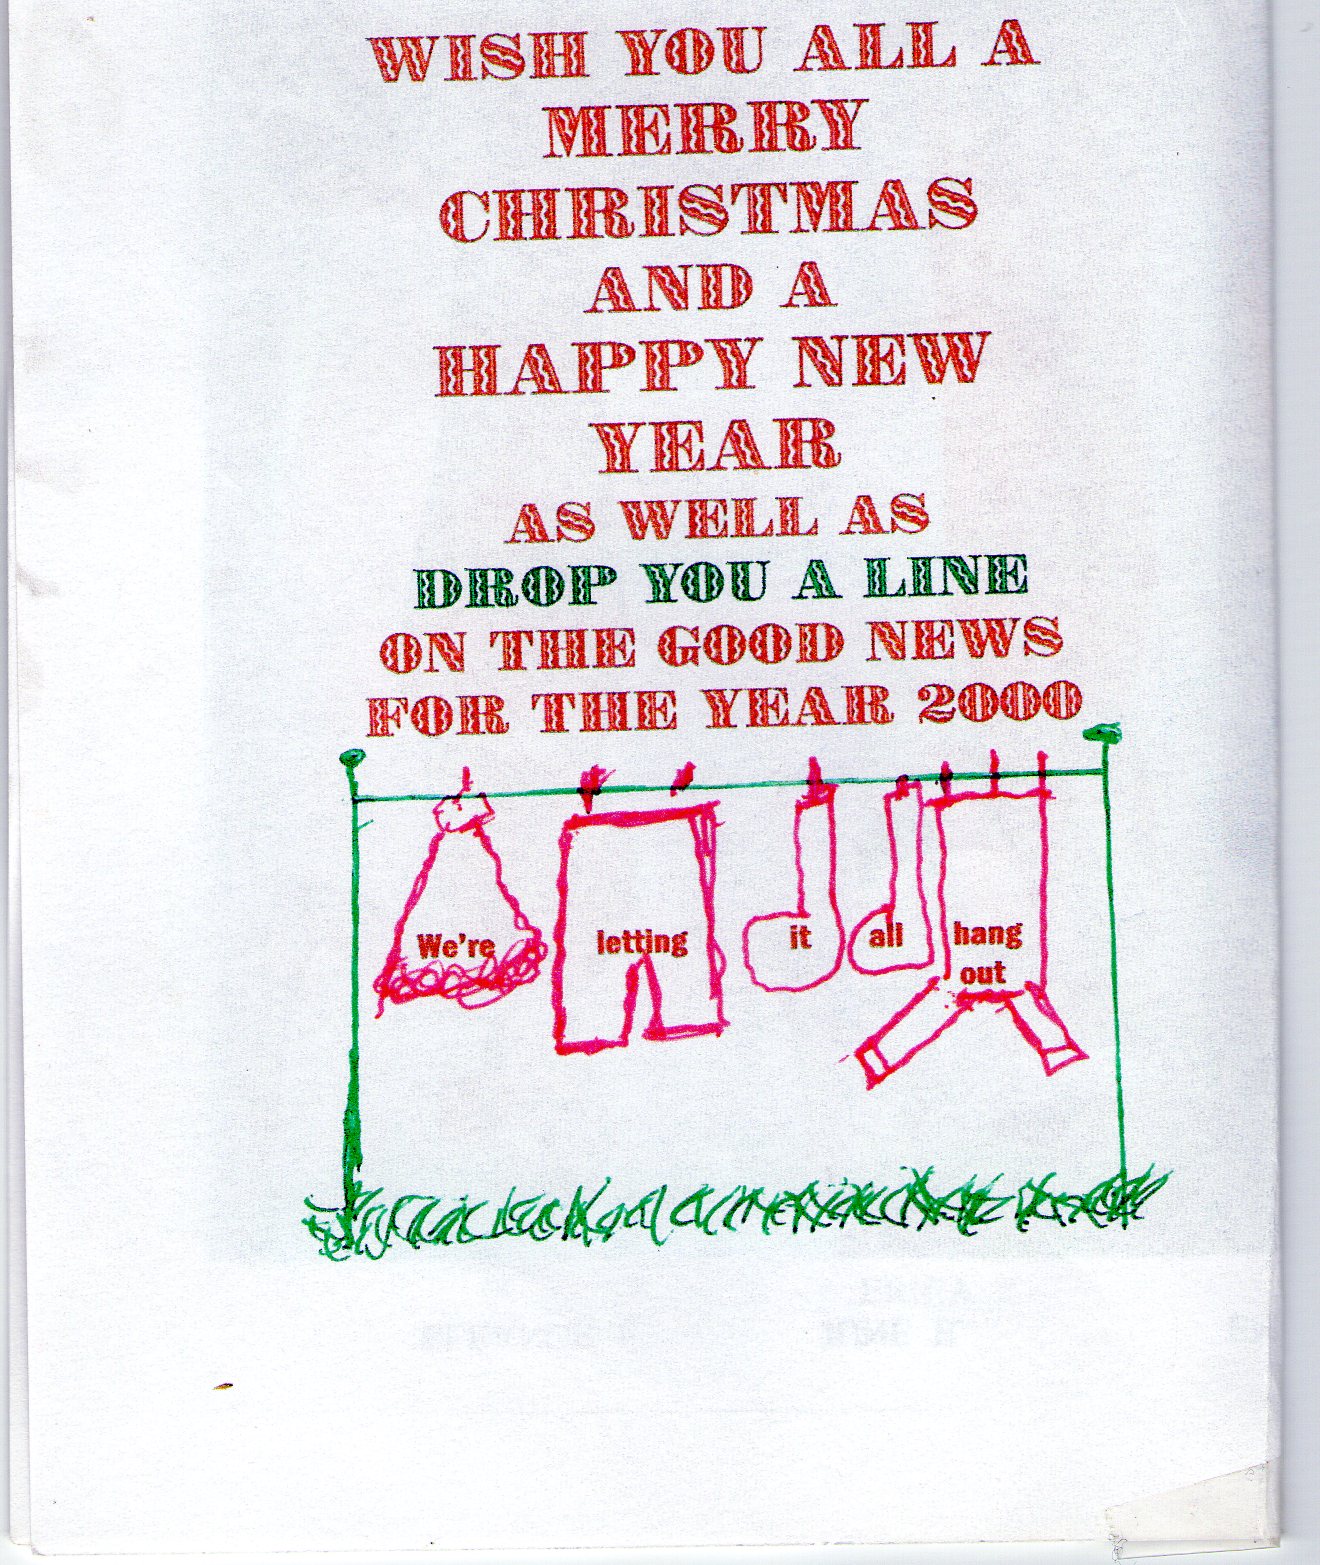 WISH YOU ALL A
MERRY
CHRISTMAS
AND A
HAPPY NEW
YEAR
AS WELL AS
DROP YOU A LINE
ON THE GOOD NEWS
FOR THE YEAR 2000
We're letting it all hang
out